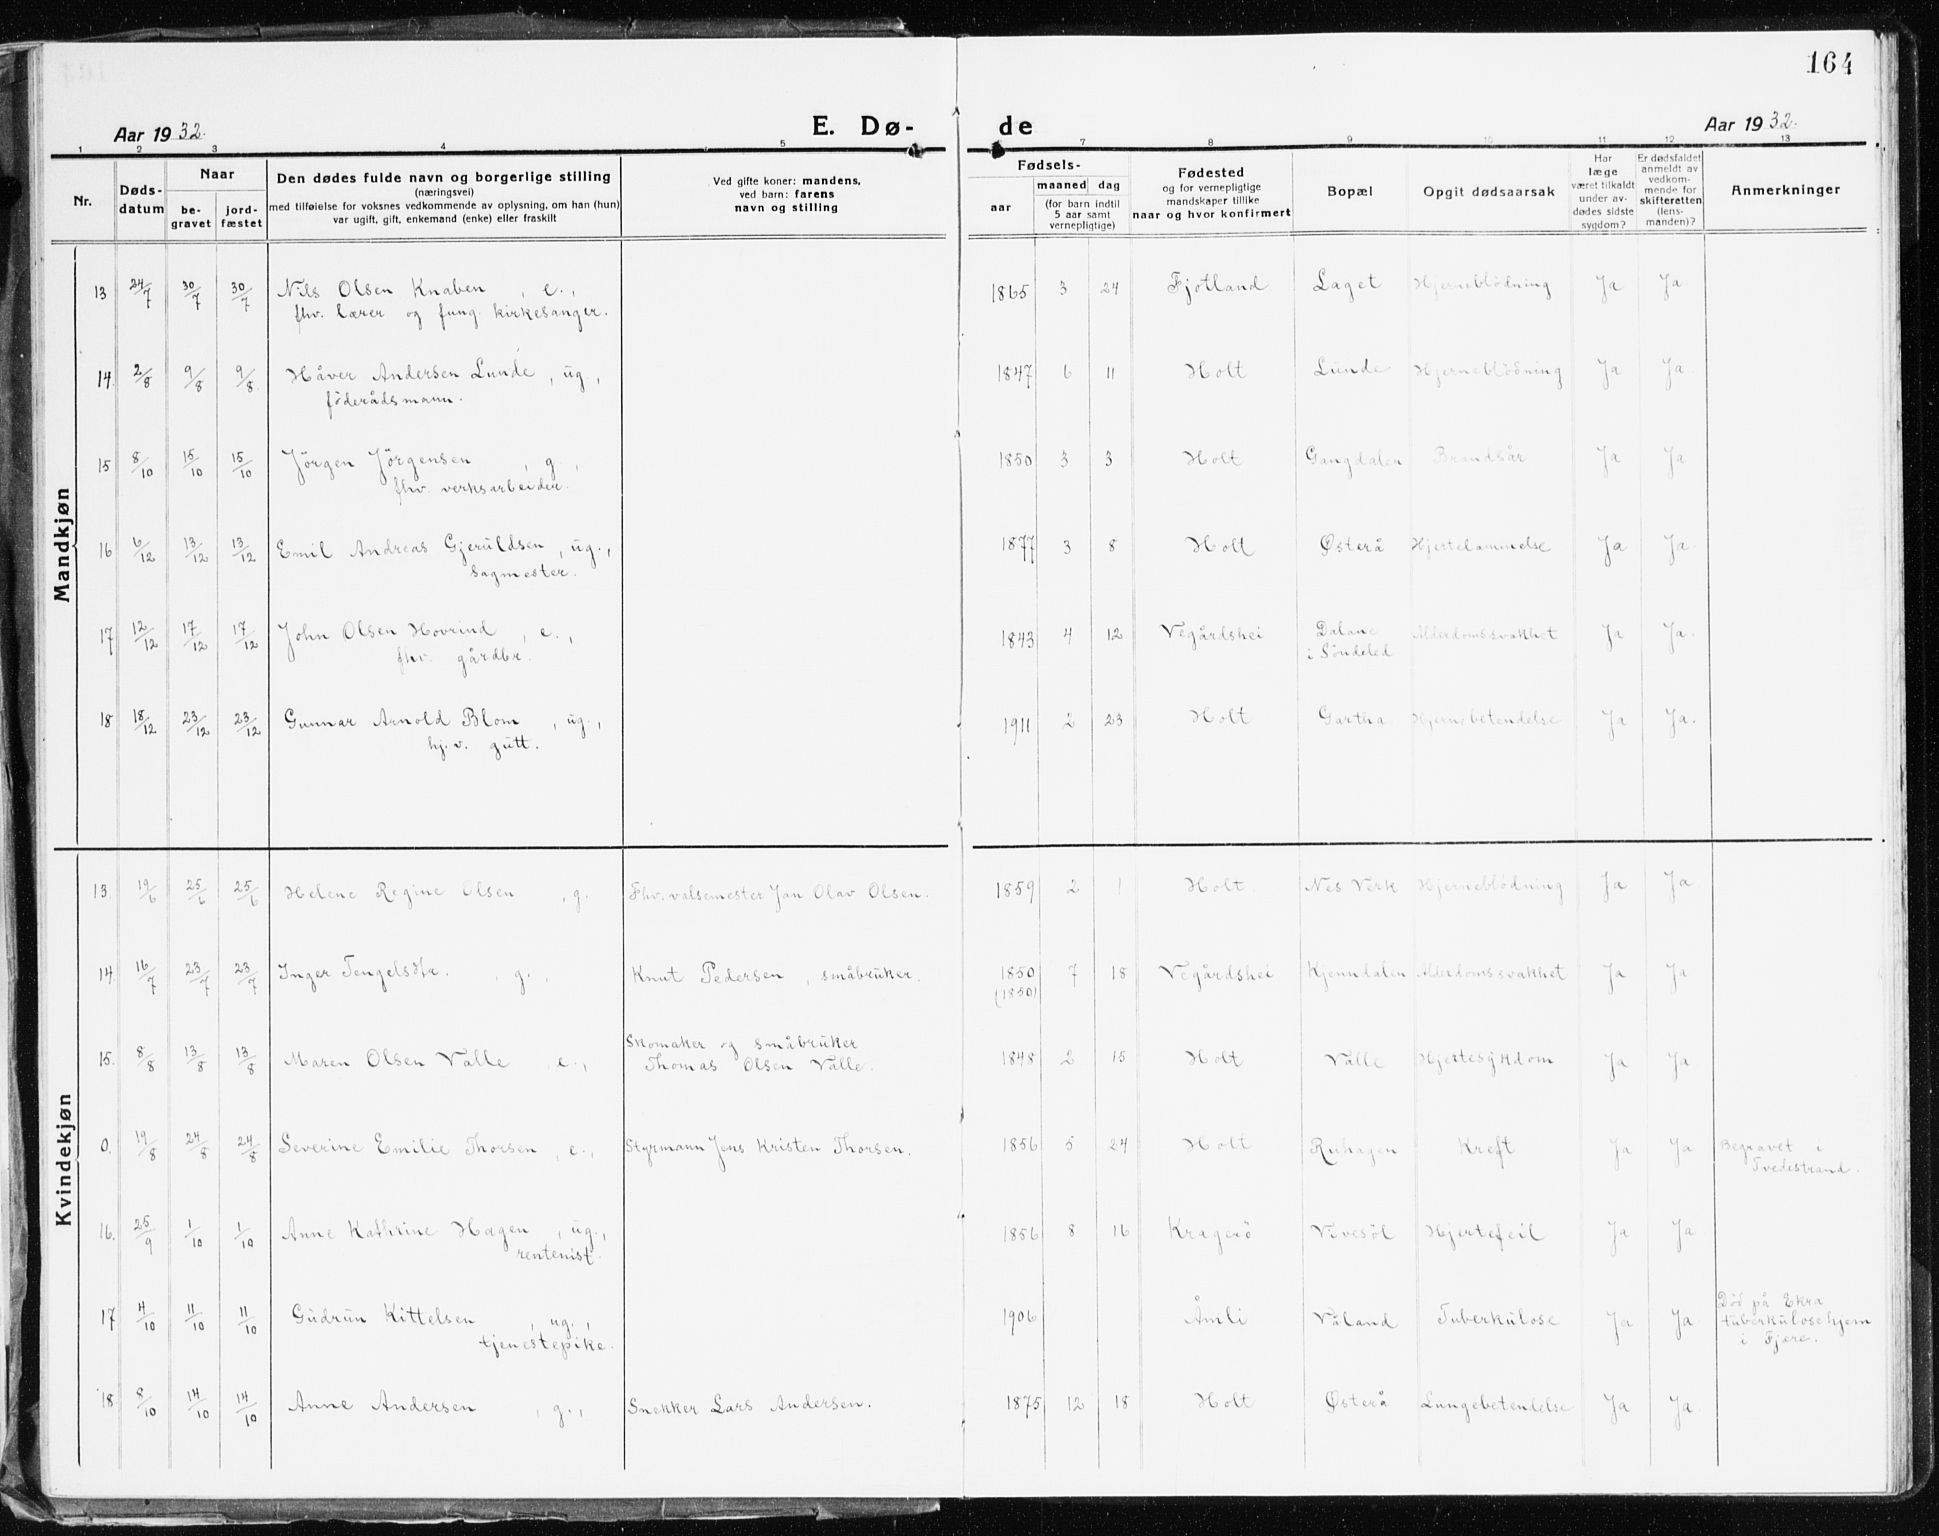 164
Aar 1932.
E. Dø-
de
Aar 1932.
1 2 3 4 5 7 8 9 10 11 12 13
Nr.
Døds-
datum
Naar
be-
gravet
jord-
fæstet
Den dødes fulde navn og borgerlige stilling
(næringsvei)
med tilføielse for voksnes vedkommende av oplysning, om han (hun)
var ugift, gift, enkemand (enke) eller fraskilt
Ved gifte koner: mandens,
ved barn: farens
navn og stilling
Fødsels-
aar
maaned dag
(for barn indtil
5 aar samt
vernepligtige)
Fødested
og for vernepligtige
mandskaper tillike
naar og hvor konfirmert
Bopæl
Opgit dødsaarsak
Har
læge
været tilkaldt
under av-
dødes sidste
sygdom?
Er dødsfaldet
anmeldt av
vedkom-
mende for
skifteretten
(lens-
manden)?
Anmerkninger
Mandkjøn
13 24/7 30/7 30/7 Nils Olsen Knaben, e., 1865 3 24 Fjotland Laget Hjerneblödning Ja Ja.
fhv. lærer og fung. kirkesanger.
14. 2/8 9/8 9/8. Håver Andersen Lunde, ug, 1847 6 11 Holt Lunde Hjerneblödning Ja Ja.
föderådsmann.
15 8/10 15/10 15/10 Jörgen Jörgensen, g., 1850 3 3 Holt Gangdalen Brandsår Ja Ja
fhv. verksarbeider.
16 6/12 13/12 13/12 Emil Andreas Gjeruldsen, ug., 1877 3 8 Holt Østerå Hjertelammelse Ja Ja.
sagmester.
17 12/12 17/12 17/12 John Olsen Hovrind, e., 1843 4 12 Vegårdshei Dalane Alderdomssvakhet Ja Ja.
fhv. gårdbr. i Söndeled
18 18/12 23/12 23/12 Gunnar Arnold Blom, ug., 1911 2 23 Holt Gartha Hjernebetendelse Ja Ja.
hj.v. gutt.
Kvindekjøn
13. 19/6 25/6 25/6 Helene Regine Olsen, g. Fhv. valsemester Jan Olav Olsen. 1859 2 1 Holt. Nes Verk Hjerneblödning Ja Ja
14. 16/7 23/7 23/7 Inger Tengelsdtr., g., Knut Pedersen, småbruker. 1850 7 18 Vegårdshei Kjenndalen Alderdomssvakhet Ja Ja
(1850)
15. 8/8 13/8 13/8 Maren Olsen Valle e., Skomaker og småbruker
Thomas Olsen Valle. 1848 2 15 Holt Valle Hjertesykdom Ja Ja
0. 19/8 24/8 24/8 Severine Emilie Thorsen, e., Styrmann Jens Kristen Thorsen. 1856 5 24 Holt Ruhagen Kreft Ja Ja Begravet i
Tvedestrand.
16. 25/9 1/10 1/10 Anne Kathrine Hagen, ug., 1856 8 16 Kragerö Vivesöl Hjertefeil Ja Ja
rentenist.
17 4/10 11/10 11/10 Gudrun Kittelsen, ug., 1906 Åmli Våland Tuberkulose Ja Ja. Död på Ekra
tjenestepike. tuberkulosehjem
i Fjære.
18. 8/10 14/10 14/10 Anne Andersen, g., Snekker Lars Andersen. 1875 12 18 Holt Østerå Lungebetendelse Ja Ja.